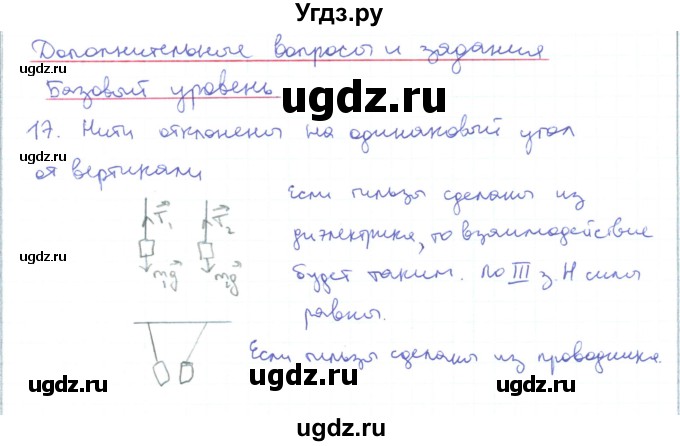 Угдз.ру
Дополнительные вопросы и задания
ugdz.ru
Базовый уровень
ugdz.ru
ugdz.ru
17. Нити отклонены на одинаковый угол
от вертикали
ugdz.ru
Если гильзы сделаны из
T₁ T₂
диэлектрика, то взаимодействие
ugdz.ru
m₁g m₂g
будет таким. По III з. Н силы
равны.
Если гильзы сделаны из проводника.
ugdz.ru ugdz.ru ugdz.ru